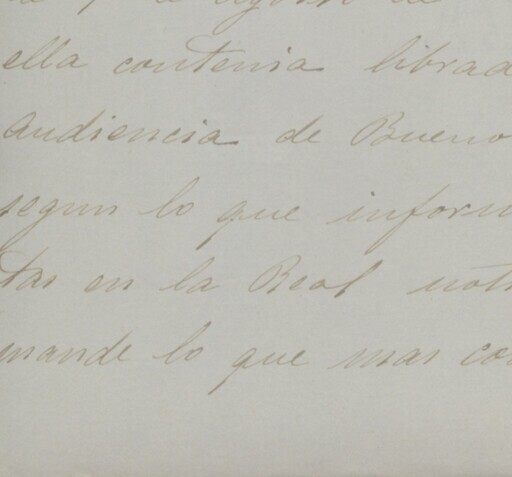 de Agosto de
ella contenia librad
Audiencia de Bueno
segun lo que inform
tas en la Real noti
mande lo que mas con